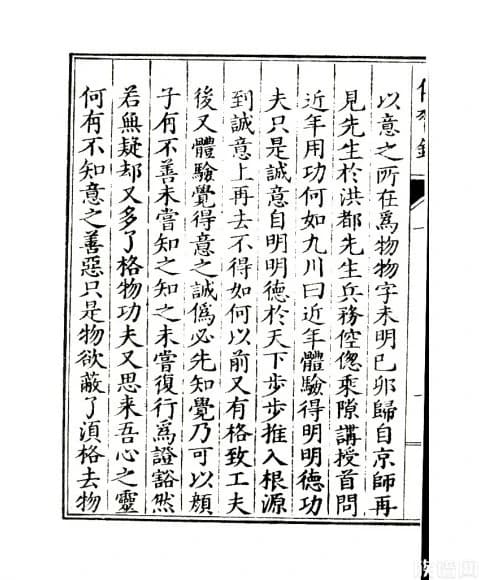 以意之所在爲物物字未明巳卯歸自京師再
見先生於洪都先生兵務倥偬乘隙講授首問
近年用功何如九川曰近年體驗得明明德功
夫只是誠意自明明德於天下步步推入根源
到誠意上再去不得如何以前又有格致工夫
後又體驗覺得意之誠僞必先知覺乃可以顏
子有不善未嘗知之知之未嘗復行爲證豁然
若無疑却又多了格物功夫又思来吾心之靈
何有不知意之善惡只是物欲蔽了湏格去物